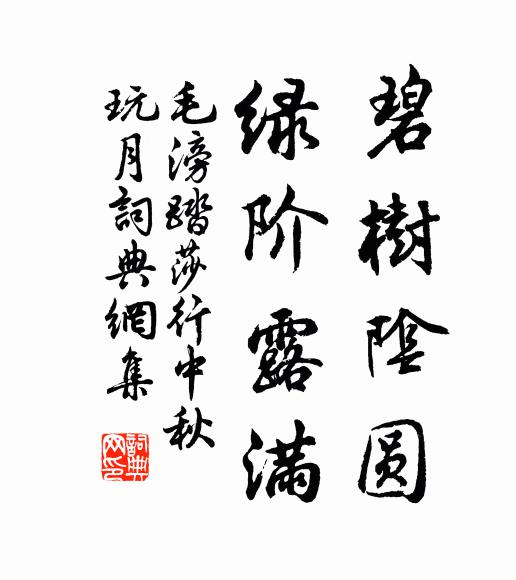 碧樹陰圆
绿阶露满
毛滂踏莎行中秋
玩月詞典網集
詞典网印